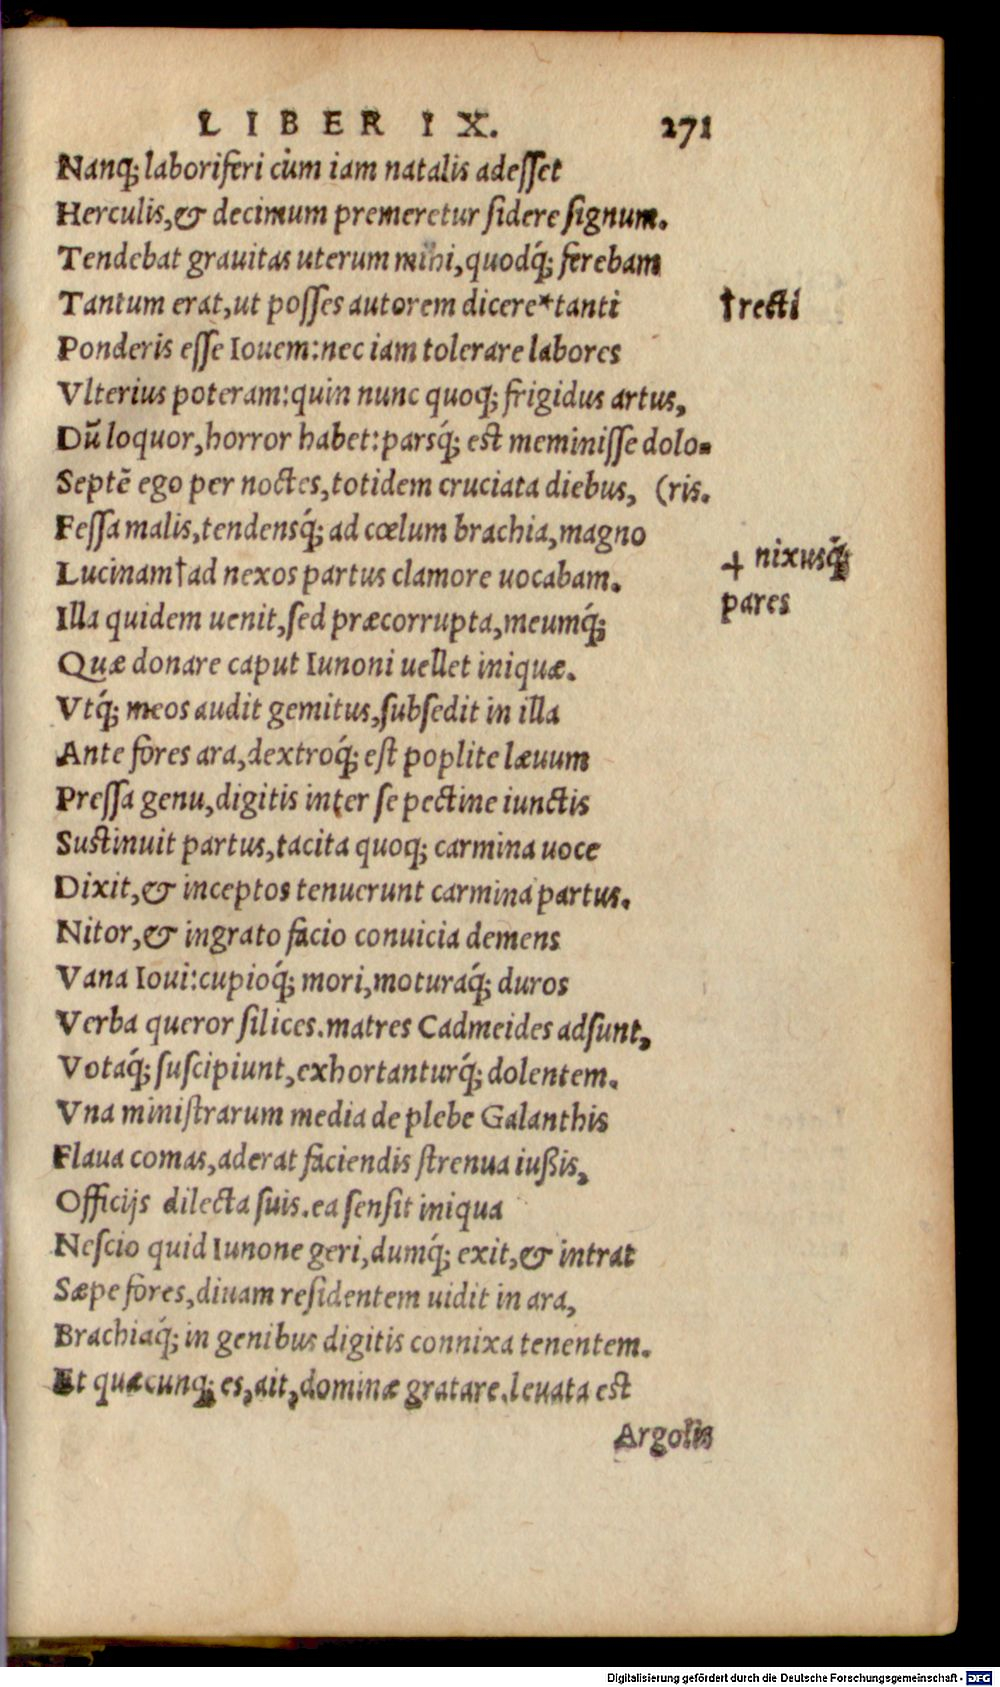 LIBER IX. 271
Nanq; laboriferi cùm iam natalis adesset
Herculis, & decimum premeretur sidere signum.
Tendebat grauitas uterum mihi, quodq́; ferebam
Tantum erat, ut posses autorem dicere*tanti
†recti
Ponderis esse Iouem: nec iam tolerare labores
Vlterius poteram: quin nunc quoq; frigidus artus,
Dũ loquor, horror habet: parsq́; est meminisse dolo-
Septẽ ego per noctes, totidem cruciata diebus, (ris.
Fessa malis, tendensq́; ad cœlum brachia, magno
Lucinam†ad nexos partus clamore uocabam.
+ nixusq́;
pares
Illa quidem uenit, sed præcorrupta, meumq́;
Quæ donare caput Iunoni uellet iniquæ.
Vtq́; meos audit gemitus, subsedit in illa
Ante fores ara, dextroq́; est poplite læuum
Pressa genu, digitis inter se pectine iunctis
Sustinuit partus, tacita quoq; carmina uoce
Dixit, & inceptos tenuerunt carmina partus.
Nitor, & ingrato facio conuicia demens
Vana Ioui: cupioq́; mori, moturaq́; duros
Verba queror silices. matres Cadmeides adsunt,
Votaq́; suscipiunt, exhortanturq́; dolentem.
Vna ministrarum media de plebe Galanthis
Flaua comas, aderat faciendis strenua iußis,
Officijs dilecta suis. ea sensit iniqua
Nescio quid Iunone geri, dumq́; exit, & intrat
Sæpe fores, diuam residentem uidit in ara,
Brachiaq́; in genibus digitis connixa tenentem.
Et quæcunq; es, ait, dominæ gratare. leuata est
Argolis
Digitalisierung gefördert durch die Deutsche Forschungsgemeinschaft - DFG